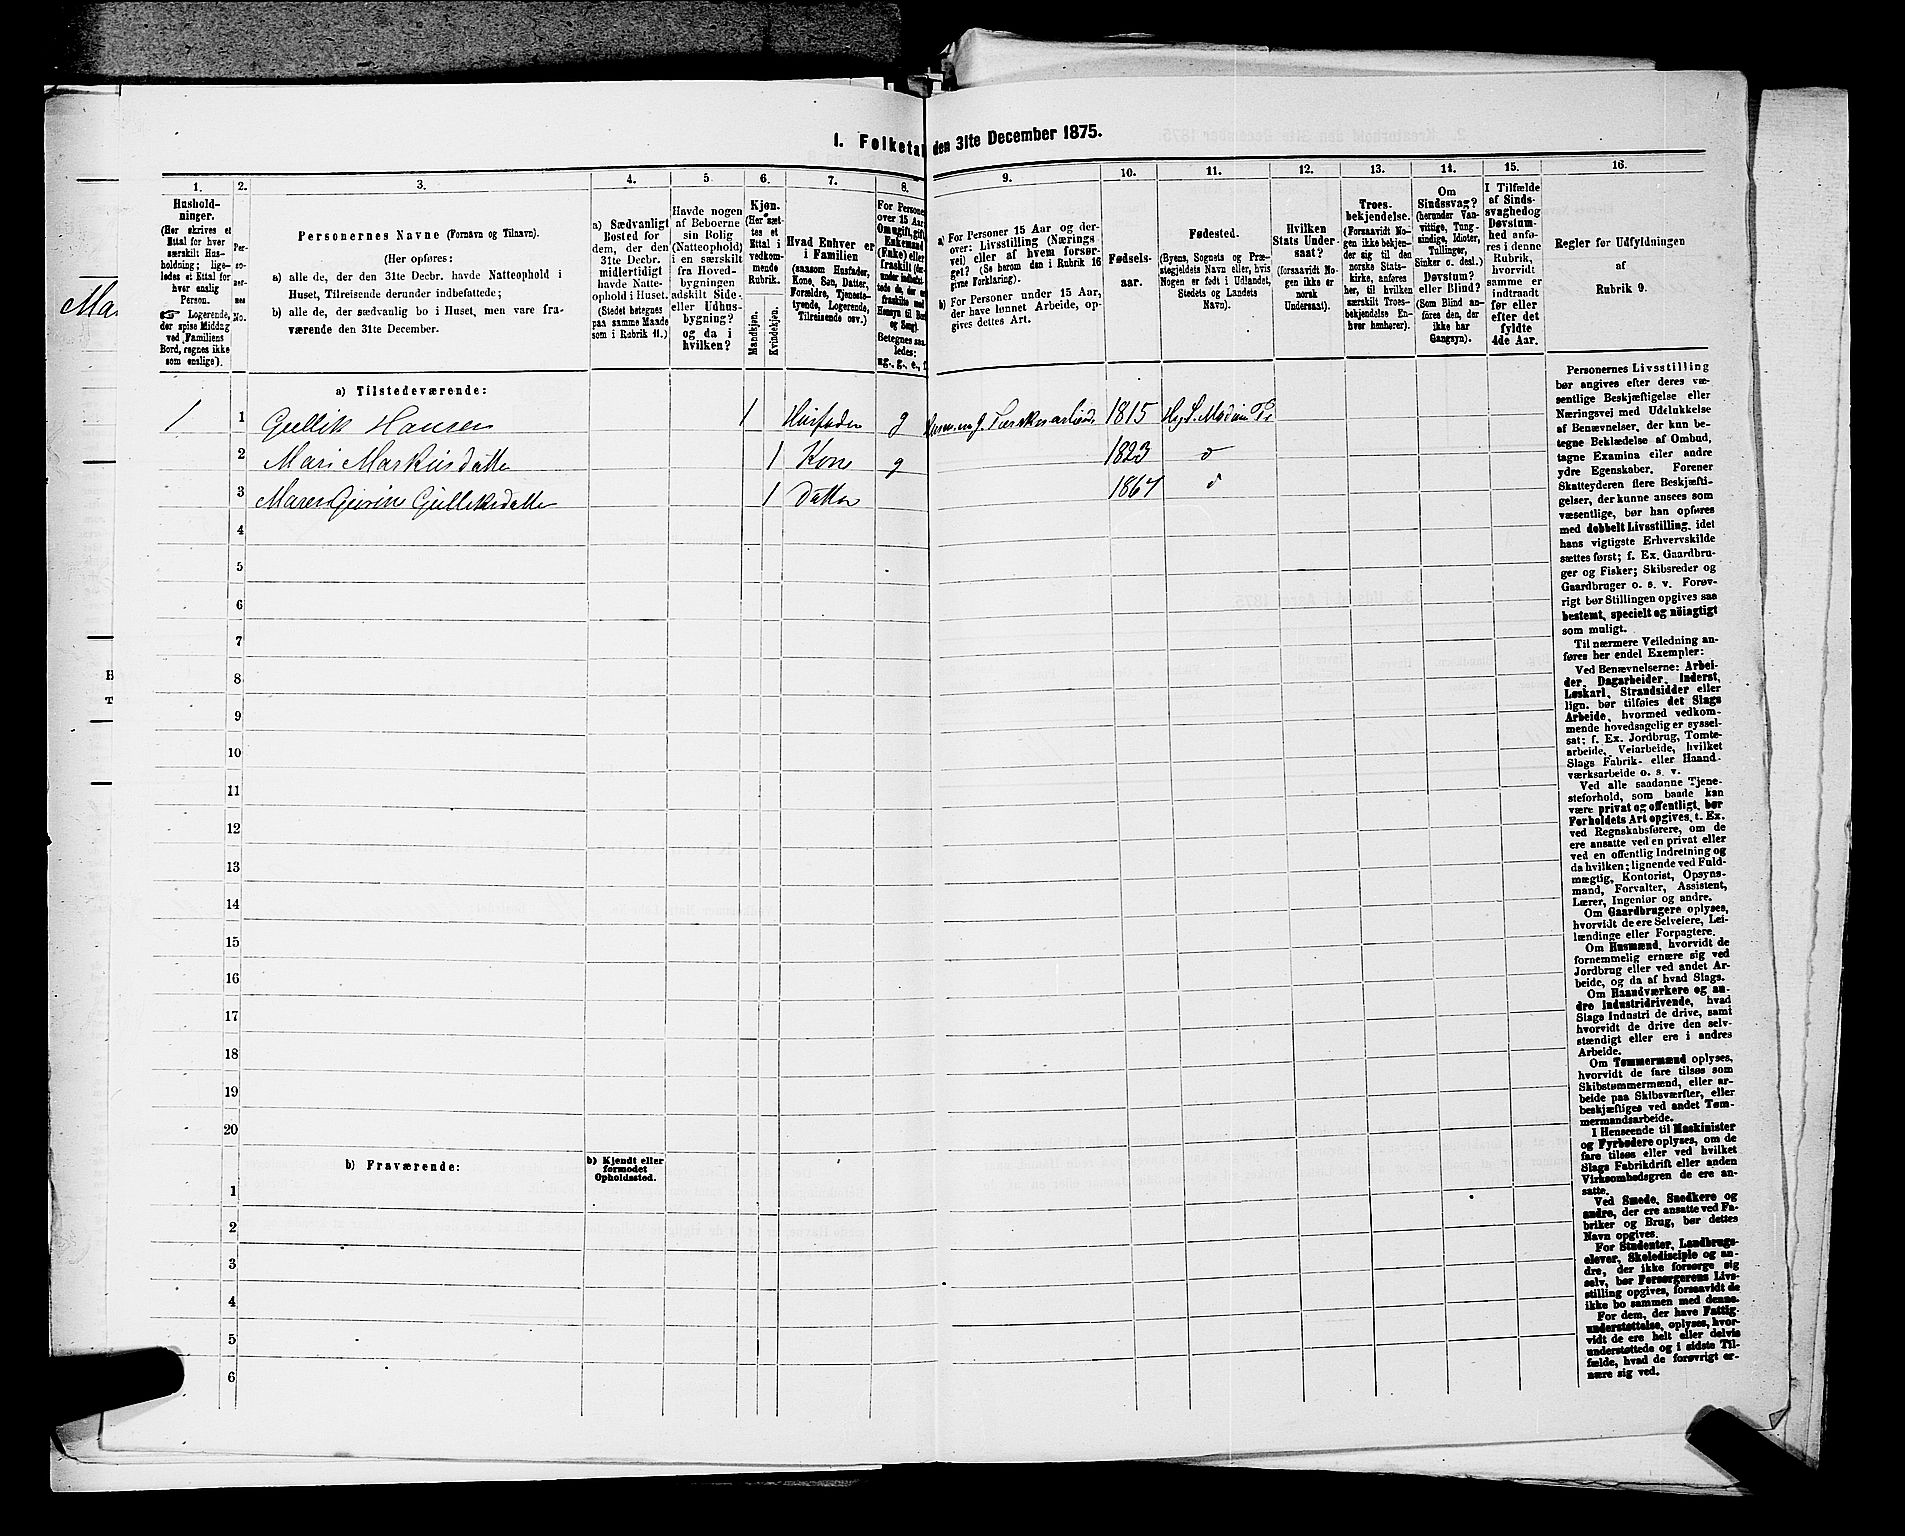 I. Folketal den 31te December 1875.
1.
2.
3.
4.
5.
6.
7.
8.
9.
10.
11.
12.
13.
14.
15.
16.
Husholdninger.
(Her skrives et
Ettal for hver
særskilt Husholdning; ligeledes et Ettal for
hver enslig
Person.
Logerende,
der spise Middag
ved Familiens
Bord, regnes ikke
som enslige).
Personernes No.
Personernes Navne (Fornavn og Tilnavn).
(Her opføres:
a) alle de, der den 31te Decbr. havde Natteophold i
Huset, Tilreisende derunder indbefattede;
b) alle de, der sædvanlig bo i Huset, men vare fraværende den 31te December.
a) Sædvanligt
Bosted for
dem, der den
31te Decbr.
midlertidigt
havde Natteophold i Huset.
(Stedet betegnes
paa samme Maade
som i Rubrik 11.)
Havde nogen
af Beboerne
sin Bolig
(Natteophold)
i en særskilt
fra Hovedbygningen
adskilt Side-
eller Udhusbygning?
og da i
hvilken?
Kjøn.
(Her sættes et
Ettal i
vedkommende
Rubrik.
Mandkjøn.
Kvindekjøn.
Hvad Enhver er
i Familien
(saasom Husfader,
Kone, Søn, Datter,
Forældre, Tjenestetyende, Logerende,
Tilreisende osv.)
For Personer
over 15 Aar
Betegnes saaledes:
ug., g., e., f.
a) For Personer 15 Aar og derover: Livsstilling (Næringsvei) eller af hvem forsørget? (Se herom den i Rubrik 16
givne Forklaring).
b) For Personer under 15 Aar,
der have lønnet Arbeide, opgives dettes Art.
Fødselsaar.
Fødested.
(Byens, Sognets og Præstegjeldets Navn eller, hvis
Nogen er født i Udlandet,
Stedets og Landets
Navn).
Hvilken
Stats Undersaat?
(forsaavidt Nogen ikke er
norsk
Undersaat).
Troesbekjendelse.
(Forsaavidt Nogen ikke bekjender sig til den
norske Statskirke, anføres
her, til hvilken
særskilt Troesbekjendelse Enhver henhører).
Om
Sindssvag?
(herunder Vanvittige, Tungsindige, Idioter,
Tullinger,
Sinker o. desl.)
Døvstum?
eller Blind?
(Som Blind anføres den, der
ikke har
Gangsyn).
I Tilfælde
af Sindssvaghed og
Døvstumhed anføres i denne
Rubrik,
hvorvidt
samme er
indtraadt
før eller
efter det
fyldte
4de Aar.
Regler for Udfyldningen
af
Rubrik 9.
a) Tilstedeværende:
1 1 Gullik Hansen 1 Husfader g 1815
2 Mari Markusdatter 1 Kone g 1823 do
3 Gulliksdatter 1 Datter 1867 do
4
5
6
7
8
9
10
11
12
13
14
15
16
17
18
19
20
b) Fraværende:
b) Kjendt eller
formodet
Opholdssted.
1
2
3
4
5
6
Personernes Livsstilling
bør angives efter deres væsentlige Beskjæftigelse eller
Næringsvei med Udelukkelse
af Benævnelser, der kun betegne Beklædelse af Ombud,
tagne Examina eller andre
ydre Egenskaber. Forener
Skatteyderen flere Beskjæftigelser, der kunne ansees som
væsentlige, bør han opføres
med dobbelt Livsstilling, idet
hans vigtigste Erhvervskilde
sættes først; f. Ex. Gaardbruger og Fisker; Skibsreder og
Gaardbruger o. s. v. Forøvrigt bør Stillingen opgives saa
bestemt, specielt og nøiagtigt
som muligt.
Til nærmere Veiledning anføres her endel Exempler:
Ved Benævnelserne: Arbeider, Dagarbeider, Inderst,
Løskarl, Strandsidder eller
lign. bør tilføies det Slags
Arbeide, hvormed vedkommende hovedsagelig er sysselsat; f. Ex. Jordbrug, Tomtearbeide, Veiarbeide, hvilket
Slags Fabrik- eller Haandværksarbeide o. s. v.
Ved alle saadanne Tjenesteforhold, som baade kan
være privat og offentligt, bør
Forholdets Art opgives, t. Ex.
ved Regnskabsførere, om de
ere ansatte ved en privat eller
ved en offentlig Indretning og
da hvilken; lignende ved Fuldmægtig, Kontorist, Opsynsmand, Forvalter, Assistent,
Lærer, Ingeniør og andre.
Om Gaardbrugere oplyses,
hvorvidt de ere Selveiere, Leilændinge eller Forpagtere.
Om Husmænd, hvorvidt de
fornemmelig ernære sig ved
Jordbrug eller ved andet Arbeide, og da af hvad Slags.
Om Haandværkere og andre Industridrivende, hvad
Slags Industri de drive, samt
hvorvidt de drive den selvstændigt eller ere i andres
Arbeide.
Om Tømmermænd oplyses,
hvorvidt de fare tilsøs som
Skibstømmermænd, eller arbeide paa Skibsværfter, eller
beskjæftiges ved andet Tømmermandsarbeide.
I Henseende til Maskinister
og Fyrbødere oplyses, om de
fare tilsøs eller ved hvilket
Slags Fabrikdrift eller anden
Virksomhedsgren de ere ansatte.
Ved Smede, Snedkere og
andre, der ere ansatte ved Fabriker og Brug, bør dettes
Navn opgives.
For Studenter, Landbrugselever, Skoledisciple og andre, der ikke forsørge sig
selv, bør Forsørgerens Livsstilling opgives, forsaavidt de
ikke bo sammen med denne.
For dem, der have Fattigunderstøttelse, oplyses, hvorvidt de ere helt eller delvis
understøttede og i sidste Tilfælde, hvad de forøvrigt ernære sig ved.